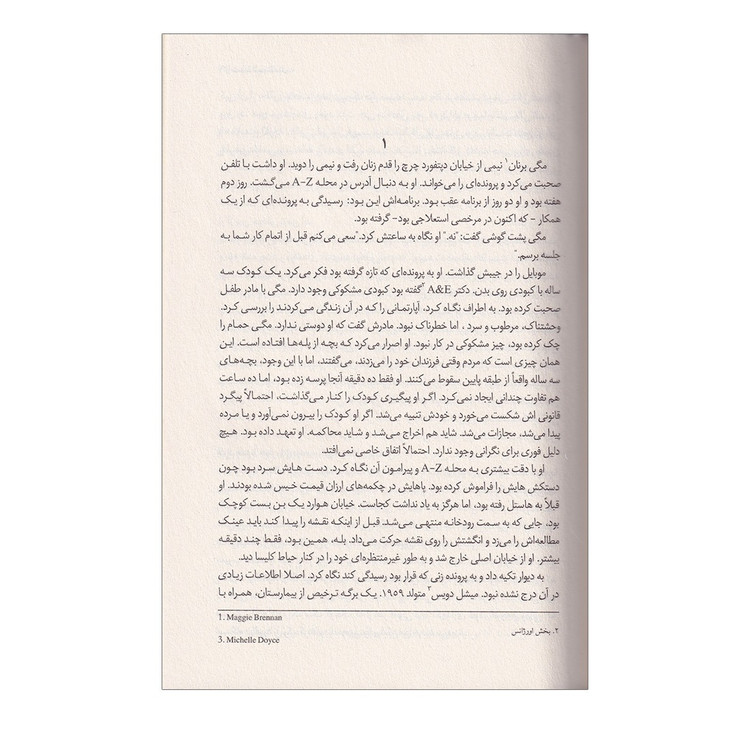 ۱
مگی برنان۱ نیمی از خیابان دپتفورد چرچ را قدم زنان رفت و نیمی را دوید. او داشت با تلفن
صحبت می‌کرد و پرونده‌ای را می‌خواند. او به دنبال آدرس در محله A-Z می‌گشت. روز دوم
هفته بود و او دو روز از برنامه عقب بود. برنامه‌اش این بود: رسیدگی به پرونده‌ای که از یک
همکار - که اکنون در مرخصی استعلاجی بود- گرفته بود.
مگی پشت گوشی گفت: "نه." او نگاه به ساعتش کرد."سعی می‌کنم قبل از اتمام کار شما به
جلسه برسم."
موبایل را در جیبش گذاشت. او به پرونده‌ای که تازه گرفته بود فکر می‌کرد. یک کودک سه
ساله با کبودی روی بدن. دکتر A&E ۲گفته بود کبودی مشکوکی وجود دارد. مگی با مادر طفل
صحبت کرده بود. به اطراف نگاه کرد، آپارتمانی را که در آن زندگی می‌کردند را بررسی کرد.
وحشتناک، مرطوب و سرد ، اما خطرناک نبود. مادرش گفت که او دوستی ندارد. مگی حمام را
چک کرده بود، چیز مشکوکی در کار نبود. او اصرار می‌کرد که بچه از پله‌ها افتاده است. این
همان چیزی است که مردم وقتی فرزندان خود را می‌زدند، می‌گفتند، اما با این وجود، بچه‌های
سه ساله واقعاً از طبقه پایین سقوط می‌کنند. او فقط ده دقیقه آنجا پرسه زده بود، اما ده ساعت
هم تفاوت چندانی ایجاد نمی‌کرد. اگر او پیگیری کودک را کنار می‌گذاشت، احتمالاً پیگرد
قانونی اش شکست می‌خورد و خودش تنبیه می‌شد. اگر او کودک را بیرون نمی‌آورد و یا مرده
پیدا می‌شد، مجازات می‌شد. شاید هم اخراج می‌شد و شاید محاکمه. او تعهد داده بود. هیچ
دلیل فوری برای نگرانی وجود ندارد. احتمالاً اتفاق خاصی نمی‌افتد.
او با دقت بیشتری به محله A-Z و پیرامون آن نگاه کرد. دست هایش سرد بود چون
دستکش هایش را فراموش کرده بود. پاهایش در چکمه‌های ارزان قیمت خیس شده بودند. او
قبلاً به هاستل رفته بود، اما هرگز به یاد نداشت کجاست. خیابان هوارد یک بن بست کوچک
بود، جایی که به سمت رودخانه منتهی می‌شد. قبل از اینکه نقشه را پیدا کند باید عینک
مطالعه‌اش را می‌زد و انگشتش را روی نقشه حرکت می‌داد. بله، همین بود، فقط چند دقیقه
بیشتر. او از خیابان اصلی خارج شد و به طور غیرمنتظره‌ای خود را در کنار حیاط کلیسا دید.
به دیوار تکیه داد و به پرونده زنی که قرار بود رسیدگی کند نگاه کرد. اصلا اطلاعات زیادی
در آن درج نشده نبود. میشل دویس۳ متولد ۱۹۵۹. یک برگه ترخیص از بیمارستان، همراه با
1. Maggie Brennan
۲. بخش اورژانس
3. Michelle Doyce